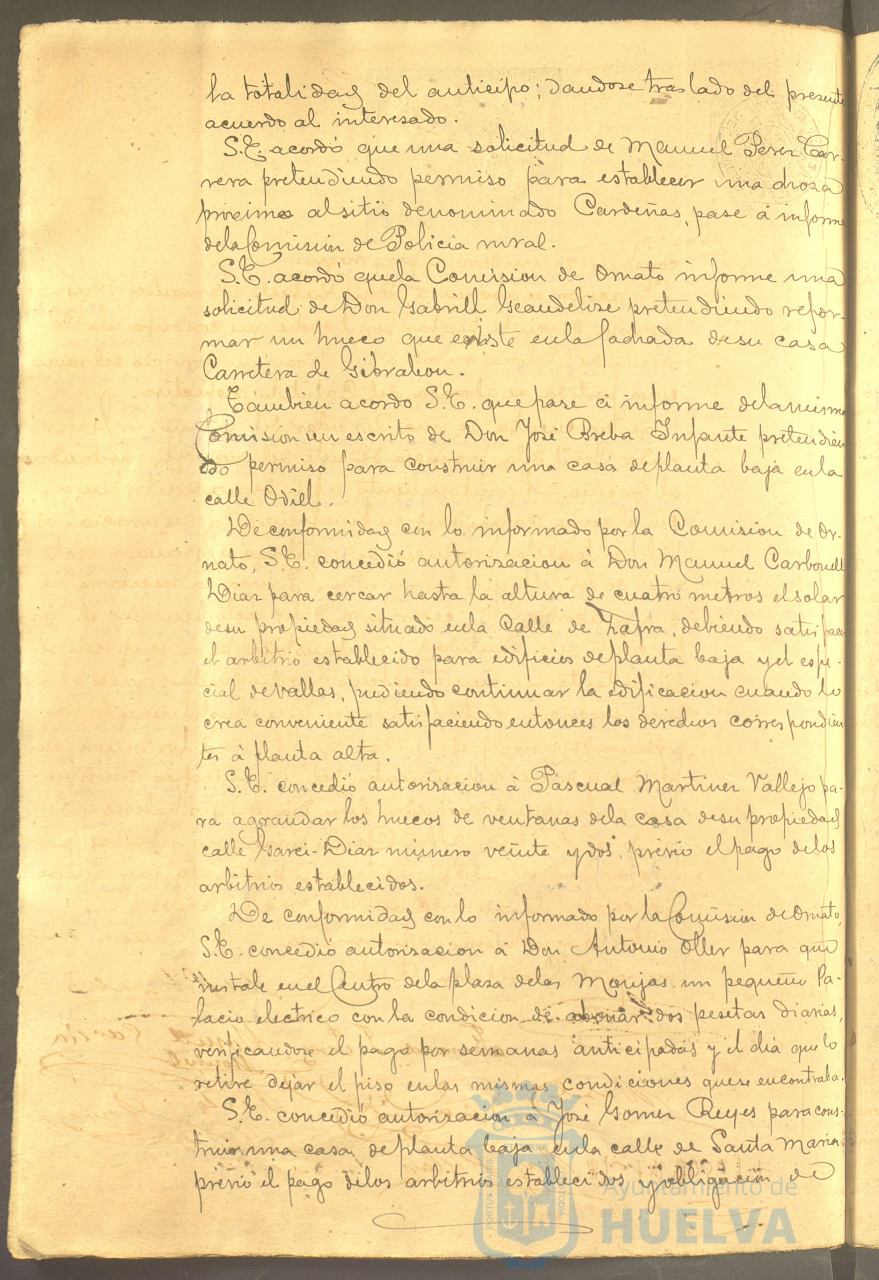 la totalidad del anticipo; dandose traslado del presente
acuerdo al interesado.
S.E. acordó que una solicitud de Manuel Perez Car-
rera pretendiendo permiso para establecer una choza
proximo al sitio denominado Cardeñas, pase á informe
de la Comisión de Policia rural.
S.E. acordó que la Comision de Ornato informe una
solicitud de Don Gabrill pretendiendo refor-
mar un hueco que existe en la fachada de su casa
Carretera de Gibraleon.
Tambien acordo S.E. que pase á informe de la misma
Comision un escrito de Don José Breba Infante pretendien
do permiso para construir una casa de planta baja en la
calle Odiel.
De conformidad con lo informado por la Comision de Or-
nato, S.E. concedió autorizacion á Don Manuel Carbonell
Diaz para cercar hasta la altura de cuatro metros el solar
de su propiedad situado en la Calle de Zafra, debiendo satisfacer
el arbitrio establecido para edificios de planta baja y el espe-
cial de vallas, pudiendo continuar la edificacion cuando lo
crea conveniente satisfaciendo entonces los derechos correspondien
tes á planta alta.
S.E. concedió autorizacion á Pascual Martinez Vallejo pa-
ra agrandar los huecos de ventanas de la casa de su propiedad
calle Garci-Diaz número veinte y dos, previo el pago de los
arbitrios establecidos.
De conformidad con lo informado por la Comision de Ornato,
S.E. concedió autorizacion á Don Antonio Oller para que
instale en el Centro de la plaza de las Monjas un pequeño Pa-
lacio electrico con la condicion de abonar dos pesetas diarias,
verificandose el pago por semanas anticipadas y el dia que lo
retire dejar el piso en las mismas condiciones que se encontraba.
S.E. concedió autorizacion á José Gomez Reyes para cons-
truir una casa de planta baja en la calle de Santa Maria,
previo el pago de los arbitrios establecidos y obligacion de
Ayuntamiento de
HUELVA